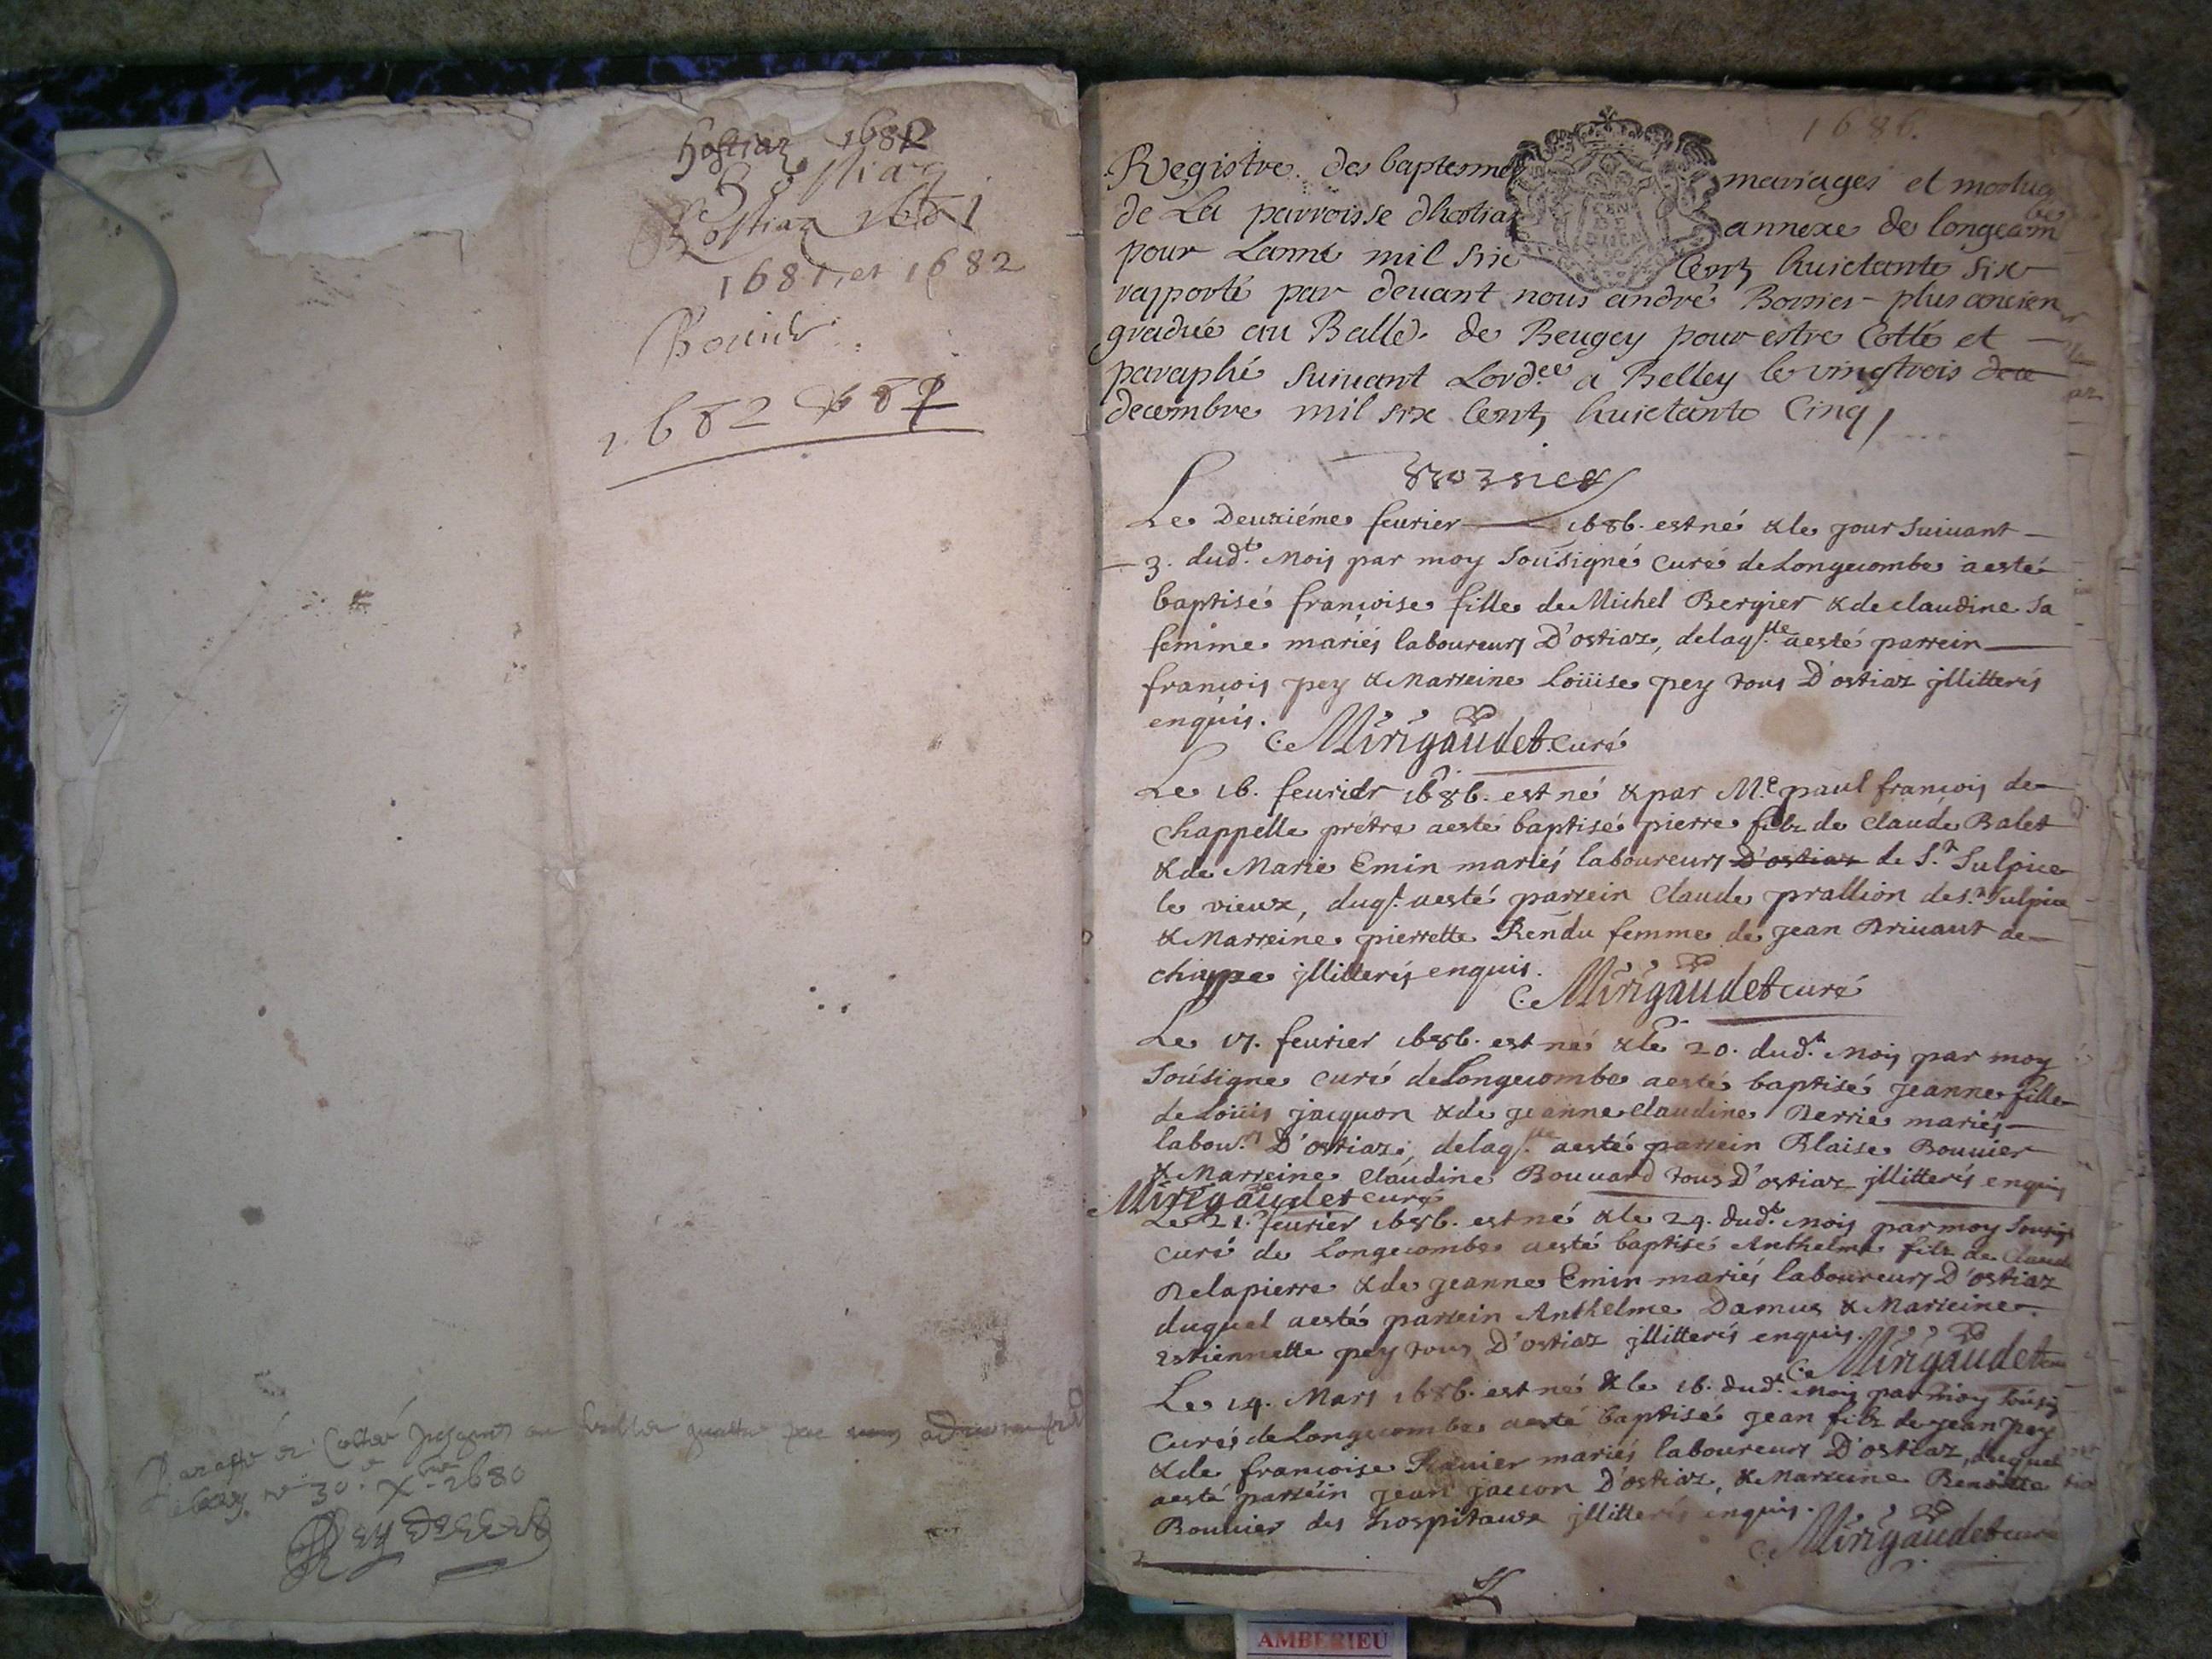 hostiaz 1682
Hostiaz 1681
1681, et 1682
Bouuier
1682
30e Xbre 1680
1686.
Registre des baptesmes mariages et mortuaires
de La parroisse dhostiaz annexe de longecombe
pour Lanné mil six Cent huictante six
rapporté par deuant nous andré Bornier plus ancien
gradué au Balle. de Beugey pour estre Cotté et
paraphé suiuant Lordce a Belley le vingtrois dece
decembre mil six Cent huictante Cinq
Le Deuxiéme feurier 1686. est né & le jour suiuant
3. dudt. Mois par moy sousigné Curé de Longecombe a esté
baptisé françoise fille de Michel Bergier & de claudine sa
femme mariés laboureurs D'ostiaz, de laqlle a esté parrein
françois pey & Marreine Loüise pey tous D'ostiaz jllitterés
enquis. Mirigaudet. Curé
Le 16. feurier 1686. est né & par Me. paul françois de
Chappelle prétre a esté baptisé pierre filz de Claude Balet
& de Marie Emin mariés laboureurs D'ostiaz de St. Sulpice
le vieux, duql. a esté parrein Claude prallion de St. Sulpice
& Marreine pierrette Rendu femme de jean Briuant de
jllitterés enquis. Mirigaudet curé
Le 17. feurier 1686. est né & le 20. dudt. Mois par moy
sousigne curé de Longecombe a esté baptisé jeanne fille
de Loüis jacquon & de jeanne claudine Berrie mariés
labourrs D'ostiaz, de laqlle a esté parrein Blaise Bouuier
& Marreine Claudine Bouuard tous D'ostiaz jllitterés enquis
Mirigaudet curé
Le 21. feurier 1686. est né & le 24. dudt. Mois par moy Sousigé
curé de Longecombe a esté baptisé Anthelme filz de Claude
Delapierre & de jeanne Emin mariés laboureurs D'ostiaz
duquel a esté parrein Anthelme Damus & Marreine
Estiennette pey tous D'ostiaz jllitterés enquis. Mirigaudet
Le 14. Mars 1686. est né & le 16. dudt. Mois par moy sousig
Curé de Longecombe a esté baptisé jean filz de jean pey
& de françoise mariés laboureurs D'ostiaz, duquel
a esté parrein jean jaccon D'ostiaz, & Marreine Benoitte
Bouuier des hospitaux jllitterés enquis.
Mirigaudet curé
AMBERIEU